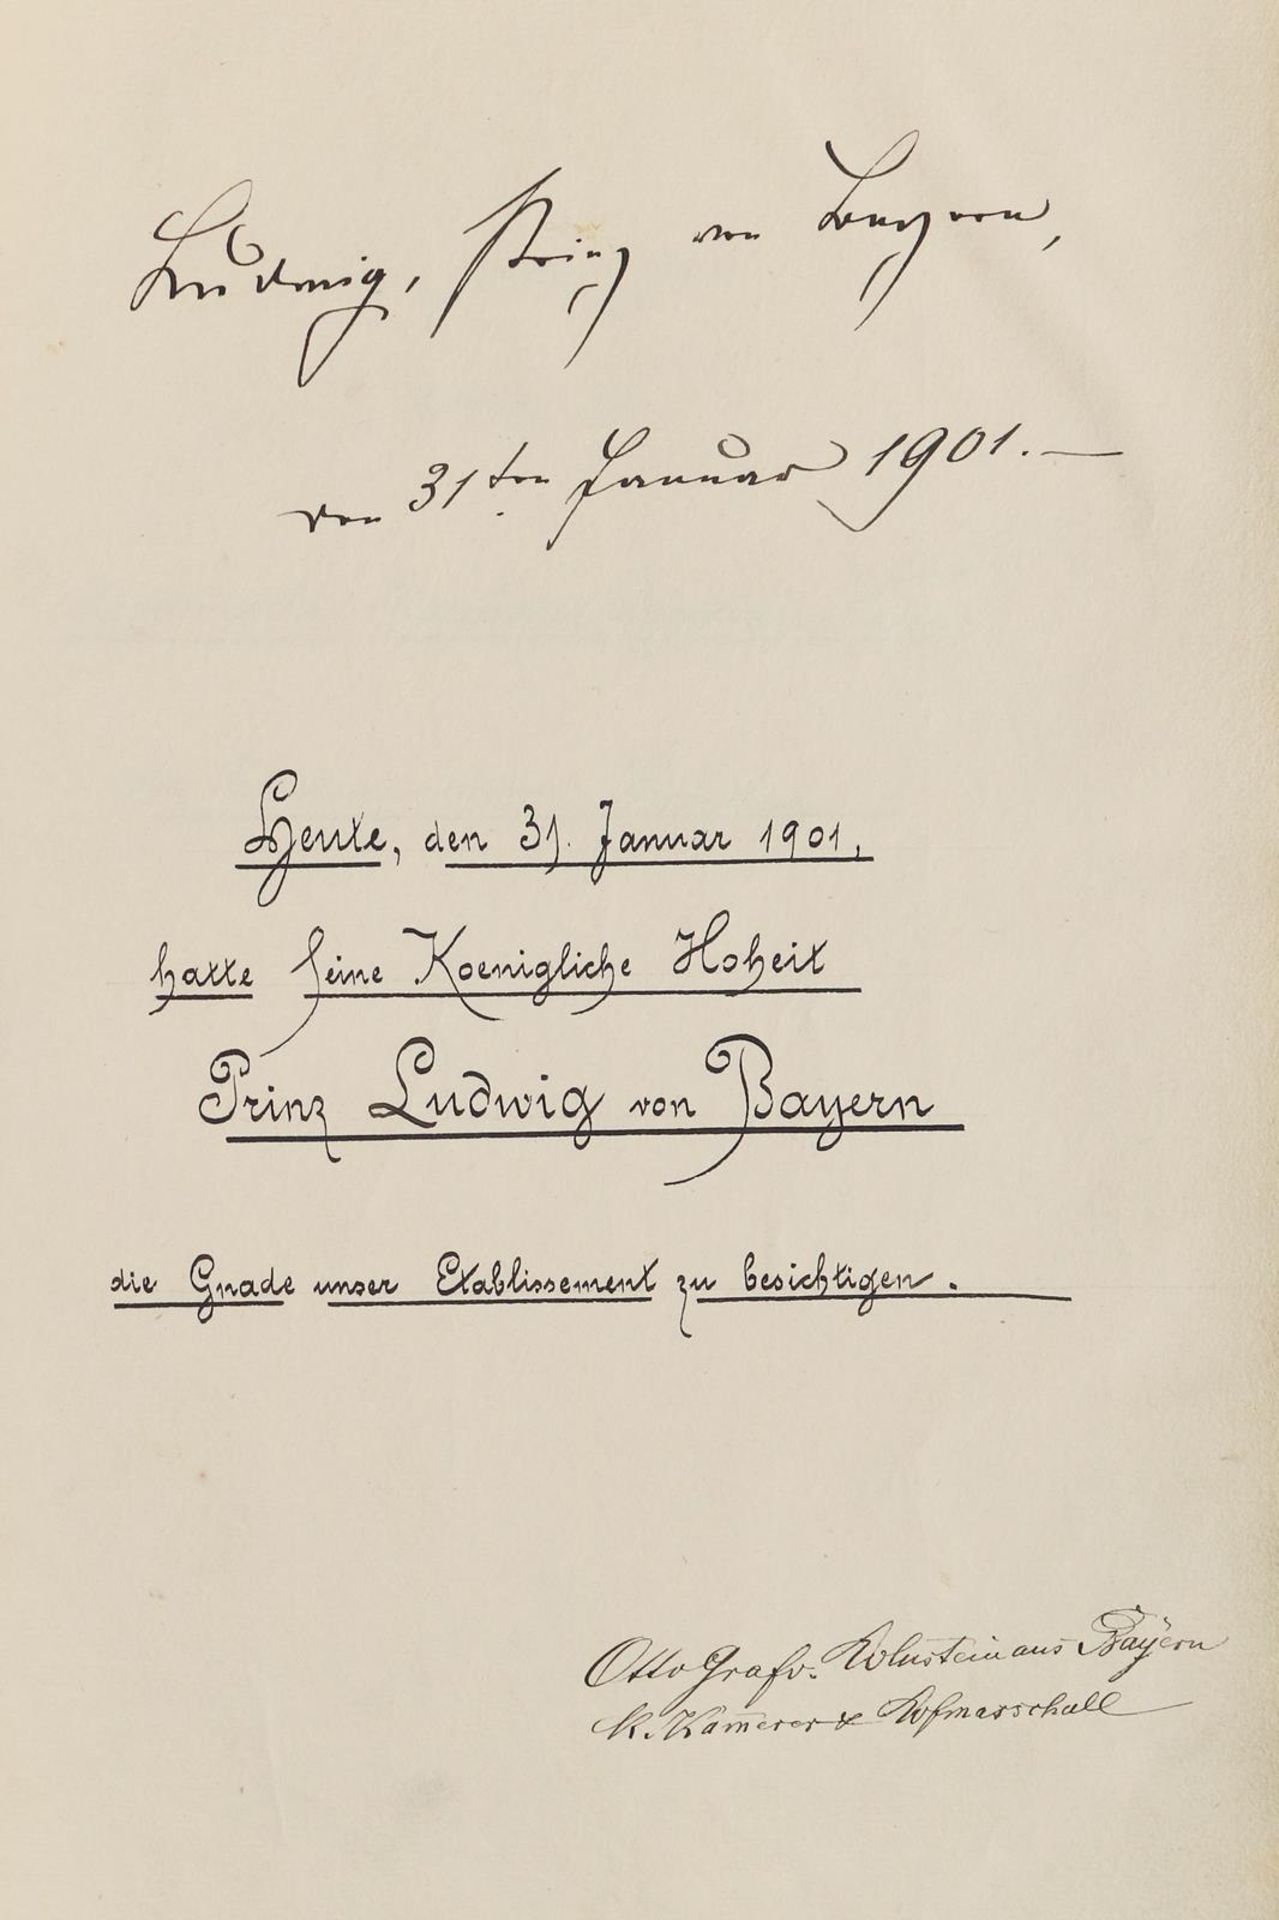 Ludwig, Prinz von Bayern,
den 31ten Januar 1901. —
Heute, den 31. Januar 1901,
hatte Seine Koenigliche Hoheit
Prinz Ludwig von Bayern
die Gnade unser Etablissement zu besichtigen.
Otto Graf v. Holnstein aus Bayern
K. Kämerer & Hofmarschall